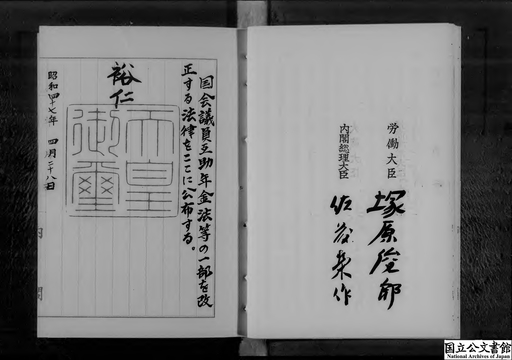 労働大臣
塚原俊郎
内閣総理大臣
佐藤榮作
国会議員互助年金法等の一部を改
正する法律をここに公布する。
裕仁
天皇
御璽
昭和四十七年 四月二十八日
内閣
国立公文書館
National Archives of Japan